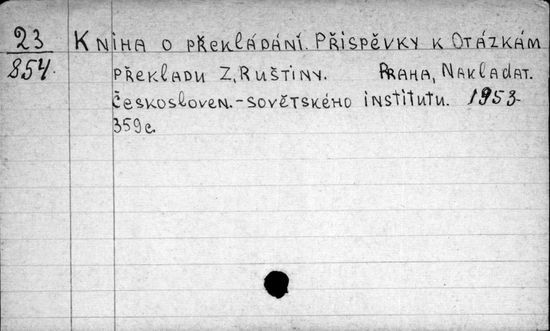 23 Kniha o překládání. Příspěvky k otázkám
854. překladu z, ruštiny. Praha, Nakladat.
českosloven.-sovětského institutu. 1953.
359 c.